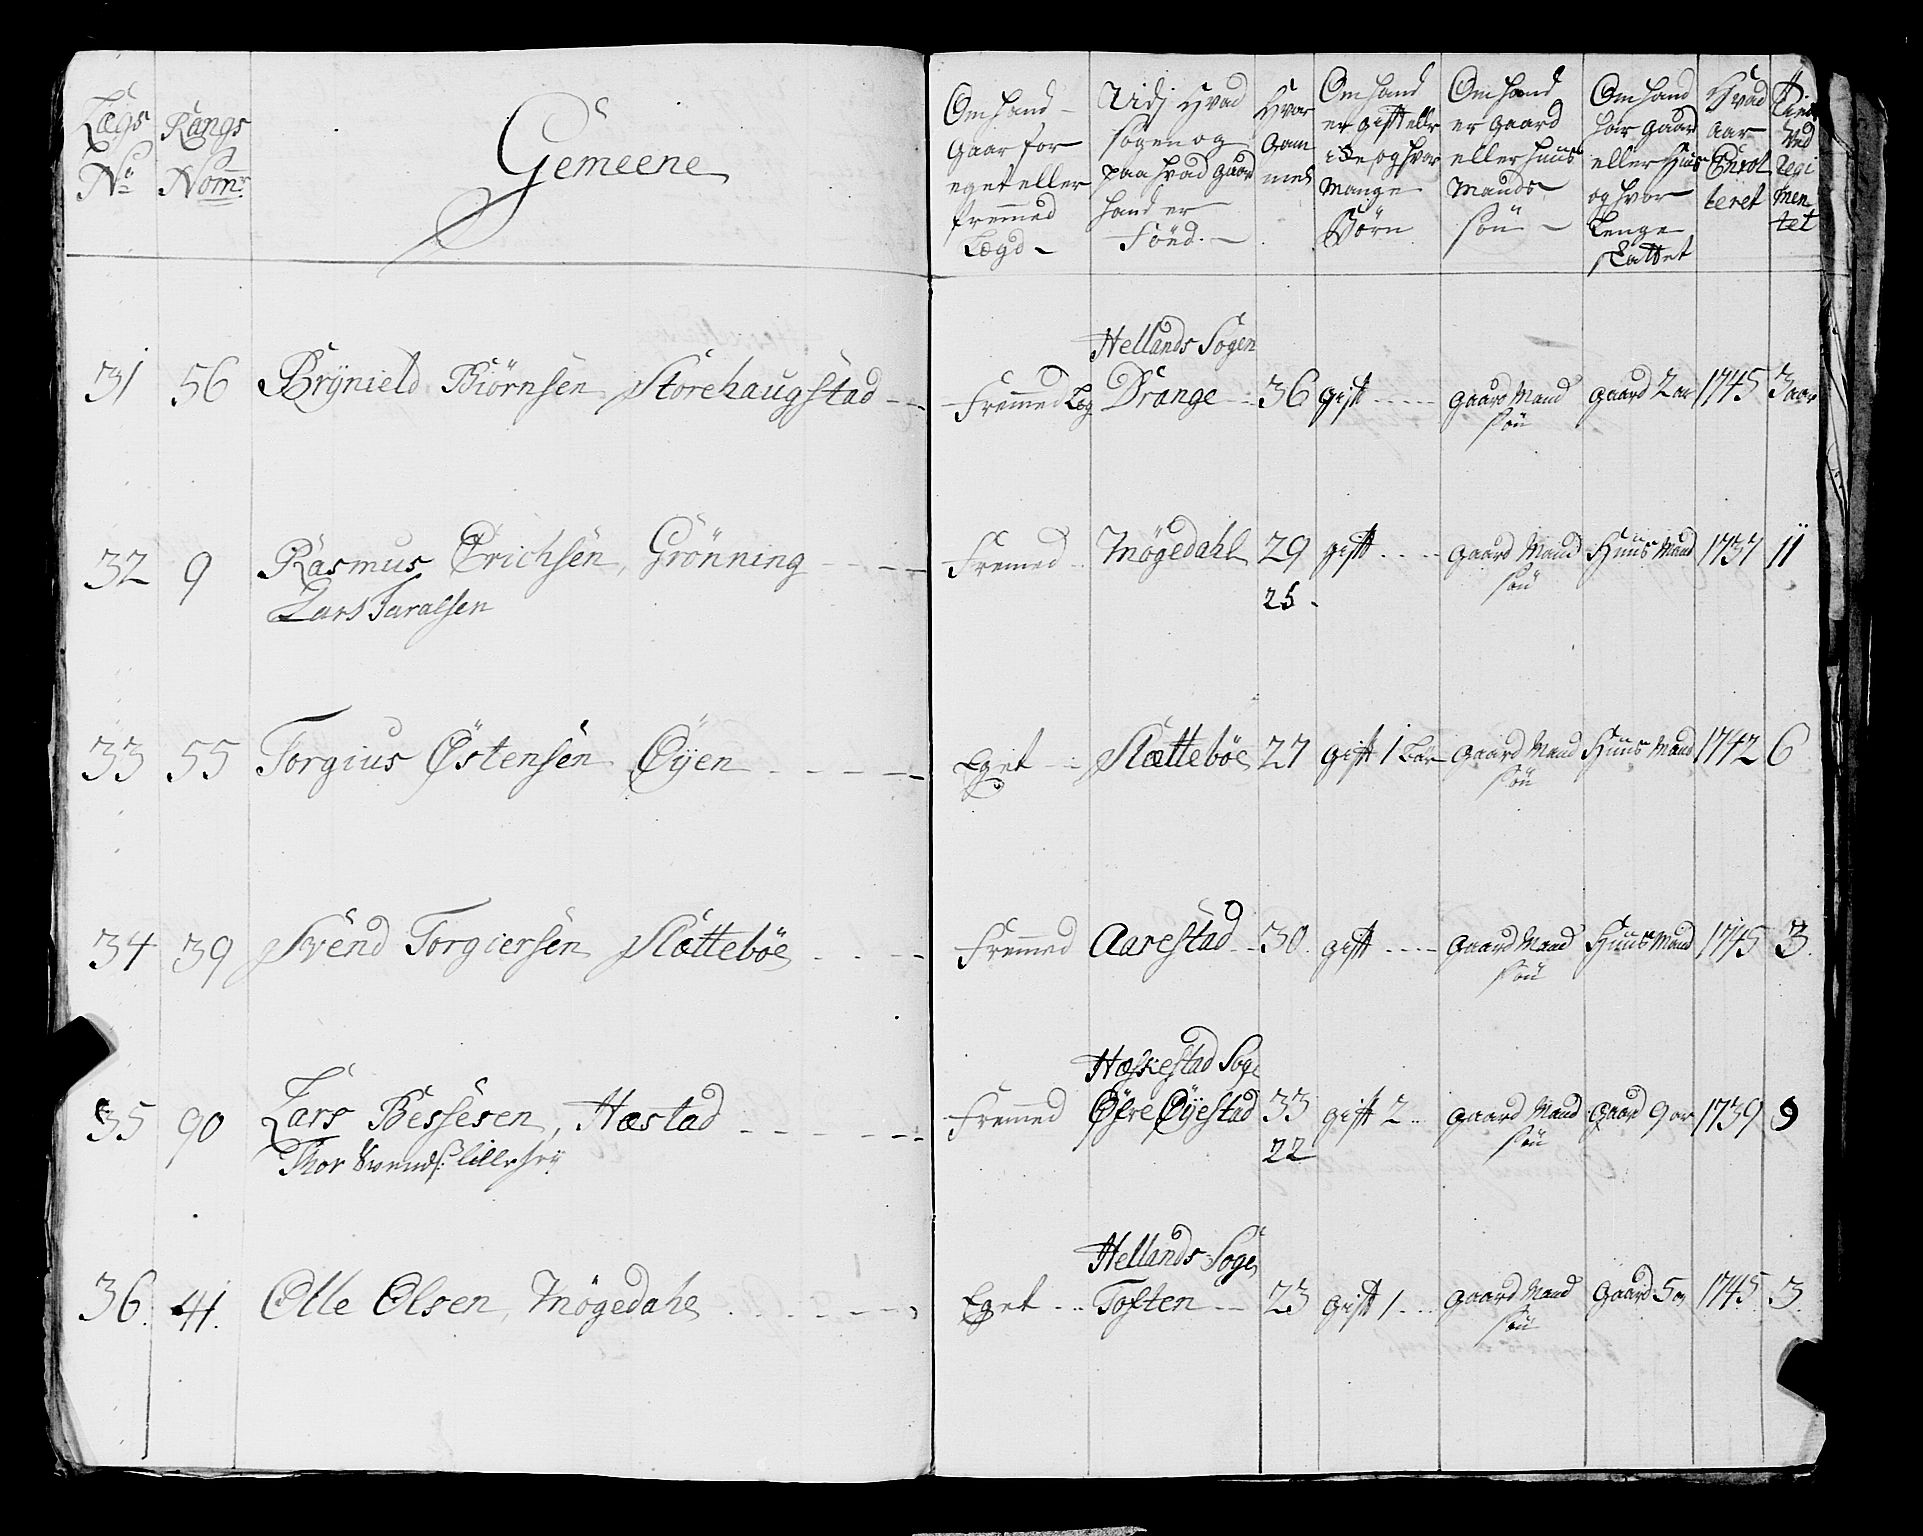 Lægs No
Rangs Nomr.
Gemeene
Om hand gaar for eget eller fremmed Lægd
Udj hvad sogen og paa hvad gaard hand er föed.
Hvor Gam mel
Om hand er gift eller ike, og hvor mange Börn
Om hand er gaard eller huus Mands sön
Om hand har gaard eller Huus og hvor Lenge skattet
Hvad aar Enrol leret
Tient ved Regi men tet
31 56 Brÿnield Biörnsen Storehaugstad Fremmed Leg Hellands Sogen Drange 36 gift gaard Mand sön gaard 2 ar 1745 3 aar
32 9 Rasmus Erichsen, Grönning Fremed Mögedahl 29 gift gaard Mand sön Huus Mand 1737 11
Lars Taralsen 25
33 55 Torgius Östensen Öÿen Eget Slætteböe 27 gift 1 gaard Mand sön Huus Mand 1742 6
34 39 Svend Torgiersen Slætteböe Fremmed Aarestad 30 gift gaard Mand sön Huus Mand 1745 3.
35 90 Lars Bessesen, Hæstad Fremmed Hæskestad Soge Öfre Öÿestad 33 gift 2 gaard Mand sön Gaard 9 ar 1739 9
Thor Svends: 22
36. 41. Olle Olsen, Mögedahl Eget Hellands Soge Toften 23 gift 1 gaard Mand sön Gaard 5 1745 3.